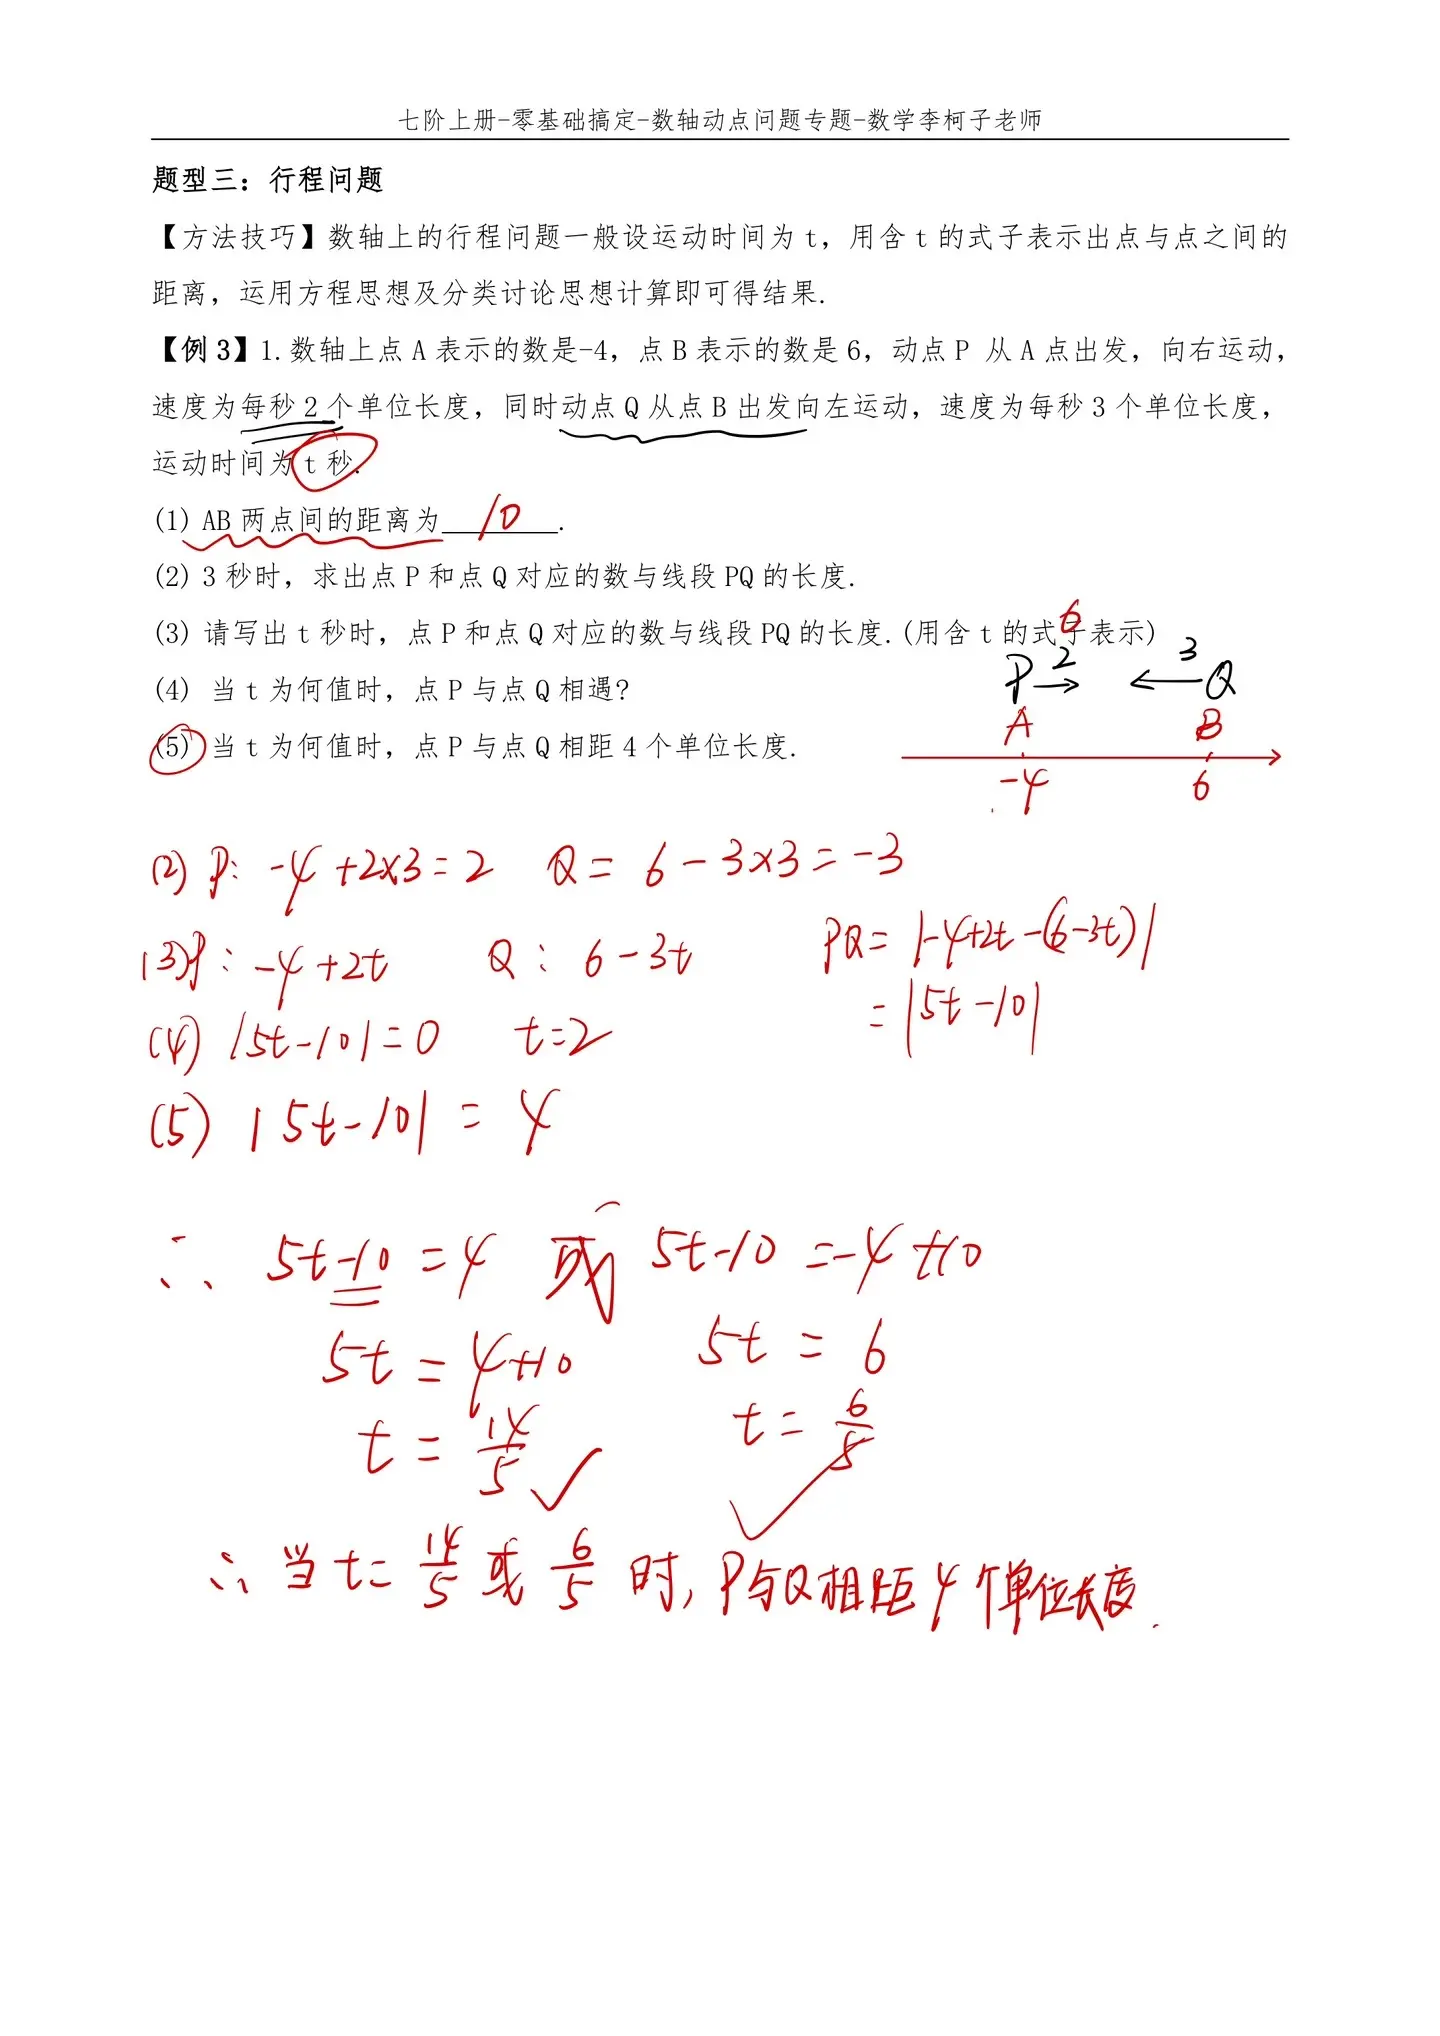 七阶上册-零基础搞定-数轴动点问题专题-数学李柯子老师
题型三：行程问题
【方法技巧】数轴上的行程问题一般设运动时间为 t，用含 t 的式子表示出点与点之间的
距离，运用方程思想及分类讨论思想计算即可得结果.
【例 3】1.数轴上点 A 表示的数是-4，点 B 表示的数是 6，动点 P 从 A 点出发，向右运动，
速度为每秒 2 个单位长度，同时动点 Q 从点 B 出发向左运动，速度为每秒 3 个单位长度，
运动时间为 t 秒.
(1) AB 两点间的距离为 10 .
(2) 3 秒时，求出点 P 和点 Q 对应的数与线段 PQ 的长度.
(3) 请写出 t 秒时，点 P 和点 Q 对应的数与线段 PQ 的长度.(用含 t 的式子表示)
6
(4) 当 t 为何值时，点 P 与点 Q 相遇?
P 2 3 Q
A B
(5) 当 t 为何值时，点 P 与点 Q 相距 4 个单位长度.
-4 6
(2) P: -4+2×3=2 Q= 6-3×3=-3
(3)P: -4+2t Q: 6-3t PQ= |-4+2t-(6-3t)|
= |5t-10|
(4) |5t-10|=0 t=2
(5) |5t-10| = 4
∴ 5t-10=4 或 5t-10=-4+10
5t=4+10 5t=6
t=14/5 t=6/5
∴当t=14/5或6/5时,P与Q相距4个单位长度.